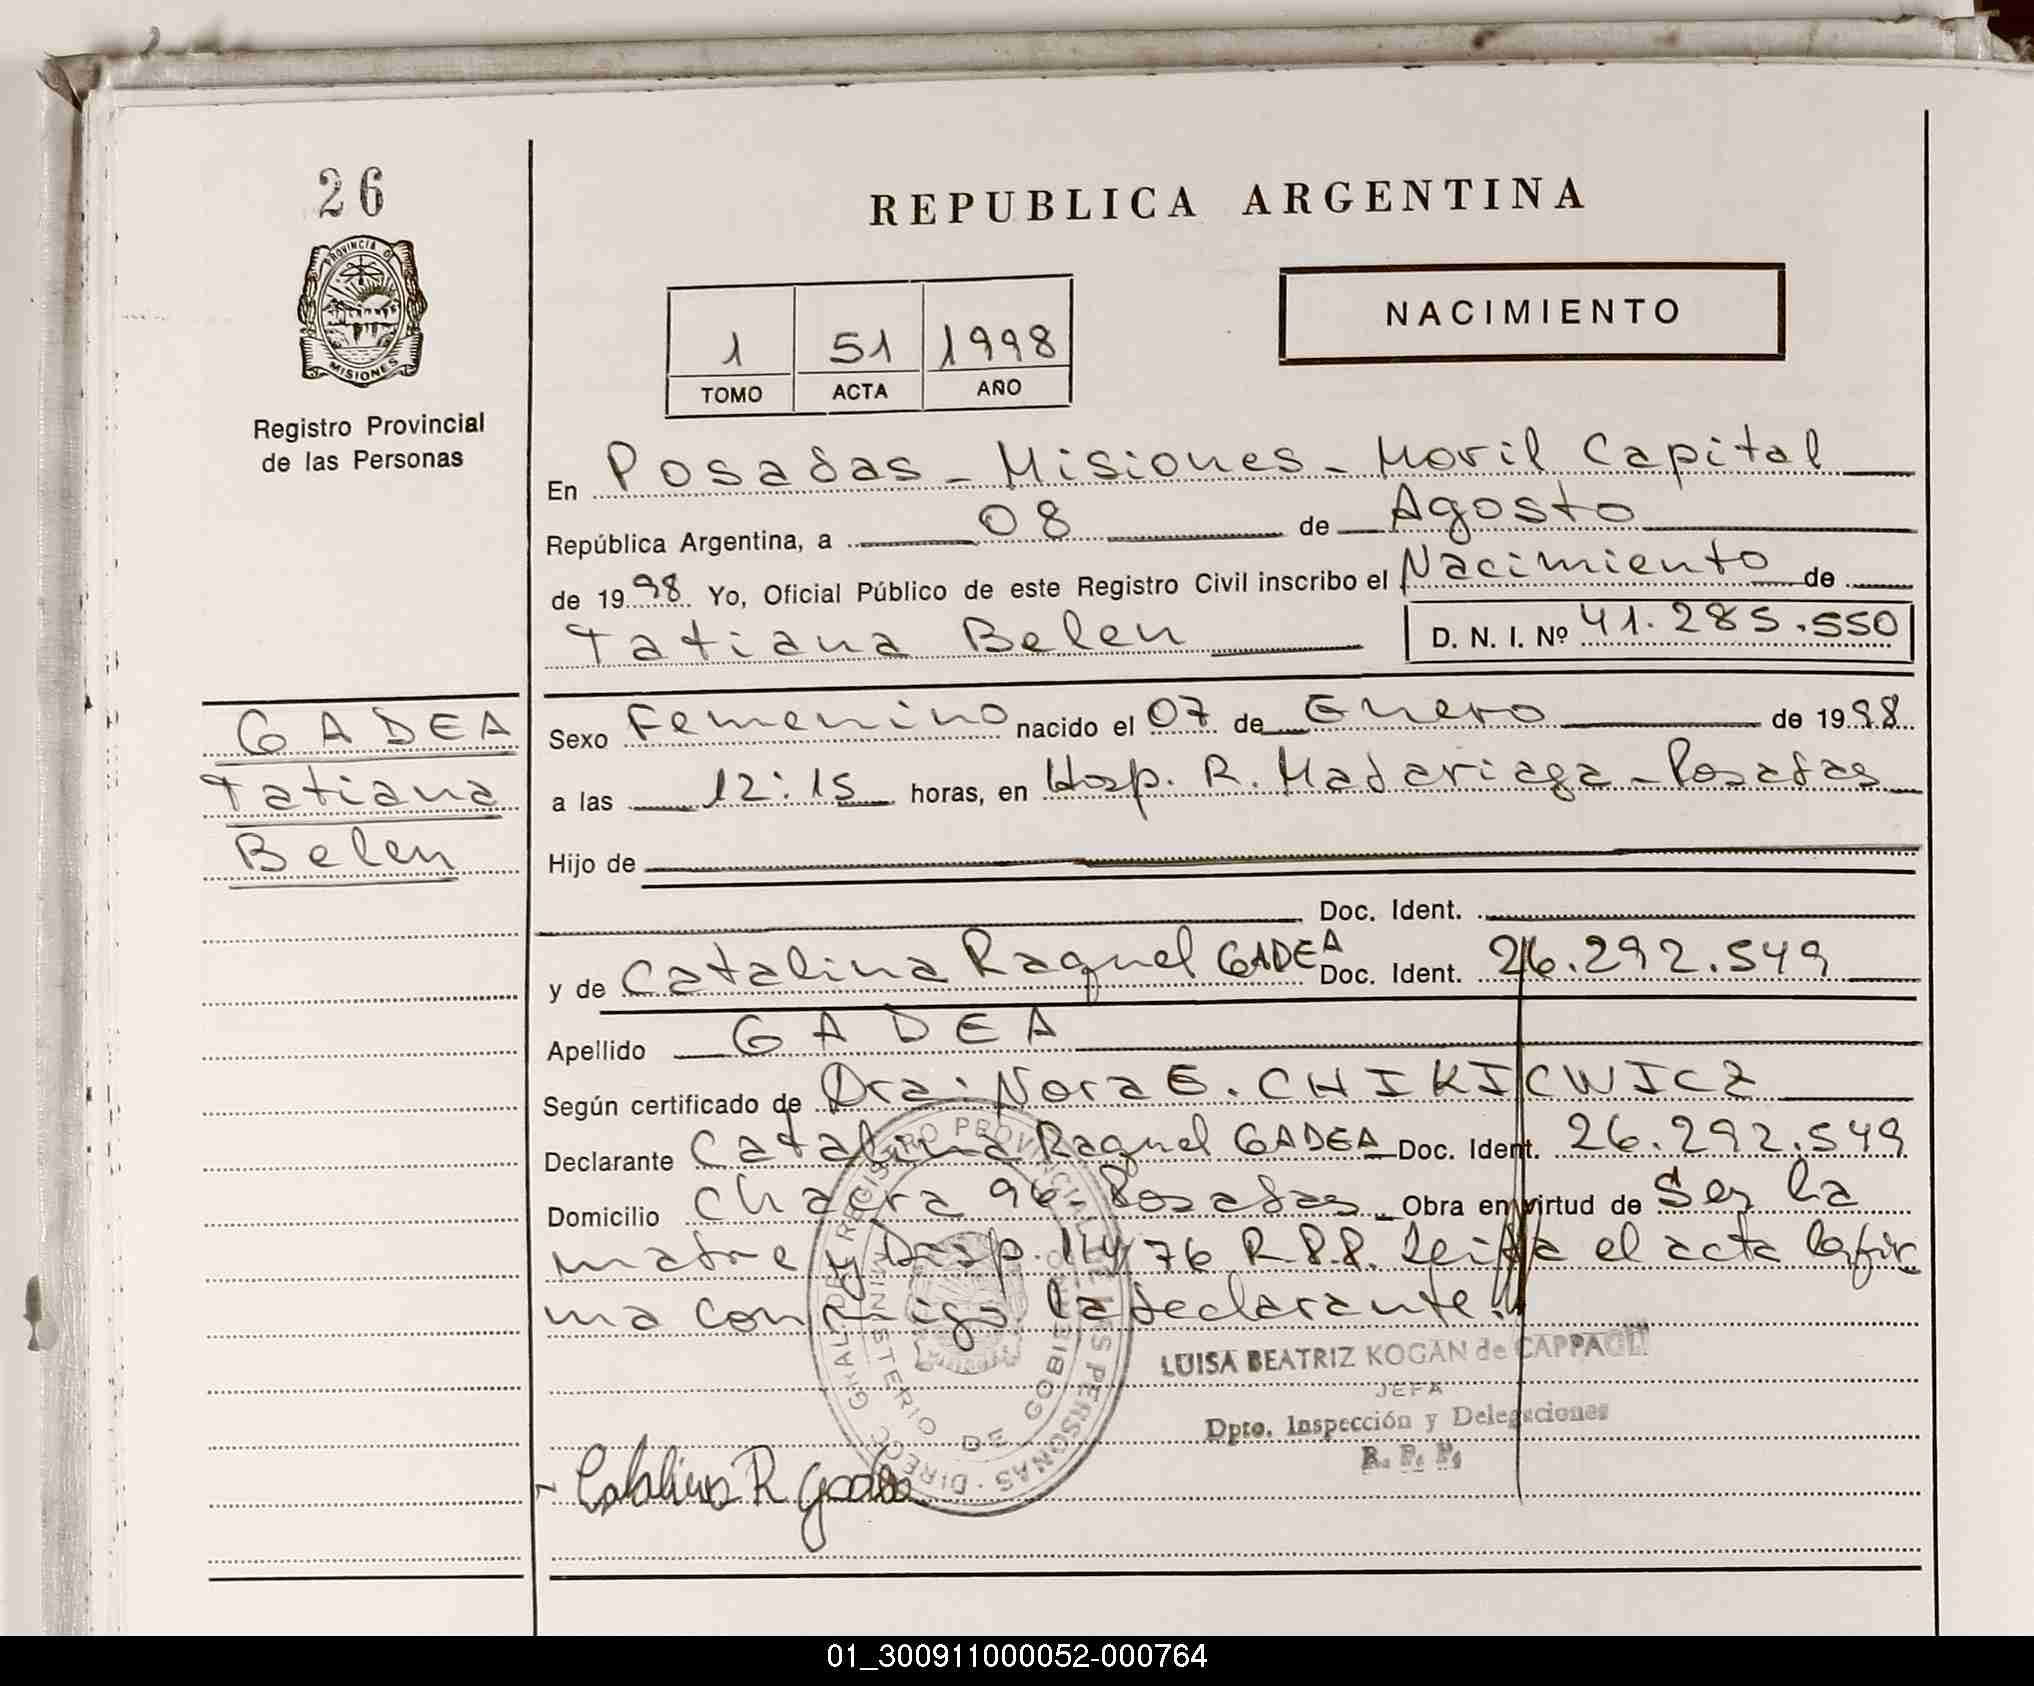 26
PROVINCIA DE
MISIONES
Registro Provincial
de las Personas
REPUBLICA ARGENTINA
NACIMIENTO
1 51 1998
TOMO ACTA AÑO
En Posadas - Misiones - Movil Capital
República Argentina, a 08 de Agosto
de 1998 Yo, Oficial Público de este Registro Civil inscribo el Nacimiento de
Tatiana Belen D. N. I. Nº 41.285.550
GADEA
Tatiana
Belen
Sexo Femenino nacido el 07 de Enero de 1998
a las 12:15 horas, en Hosp. R. Madariaga - Posadas
Hijo de
Doc. Ident.
y de Catalina Raquel GADEA Doc. Ident. 26.292.549
Apellido GADEA
Según certificado de Dra. Nora E. CHIKICWICZ
Declarante Catalina Raquel GADEA Doc. Ident. 26.292.549
Domicilio Chacra 96 - Posadas Obra en virtud de Ser la
madre y Disp. 114/76 R.P.P. Leida el acta la fir
ma conmigo la declarante.
DIRECC. GRAL. DE REGISTRO PROVINCIAL DE LAS PERSONAS
MINISTERIO DE GOBIERNO
LUISA BEATRIZ KOGAN de CAPPAGLI
JEFA
Dpto. Inspección y Delegaciones
R. P. P.
Catalina R Gadea
01_300911000052-000764